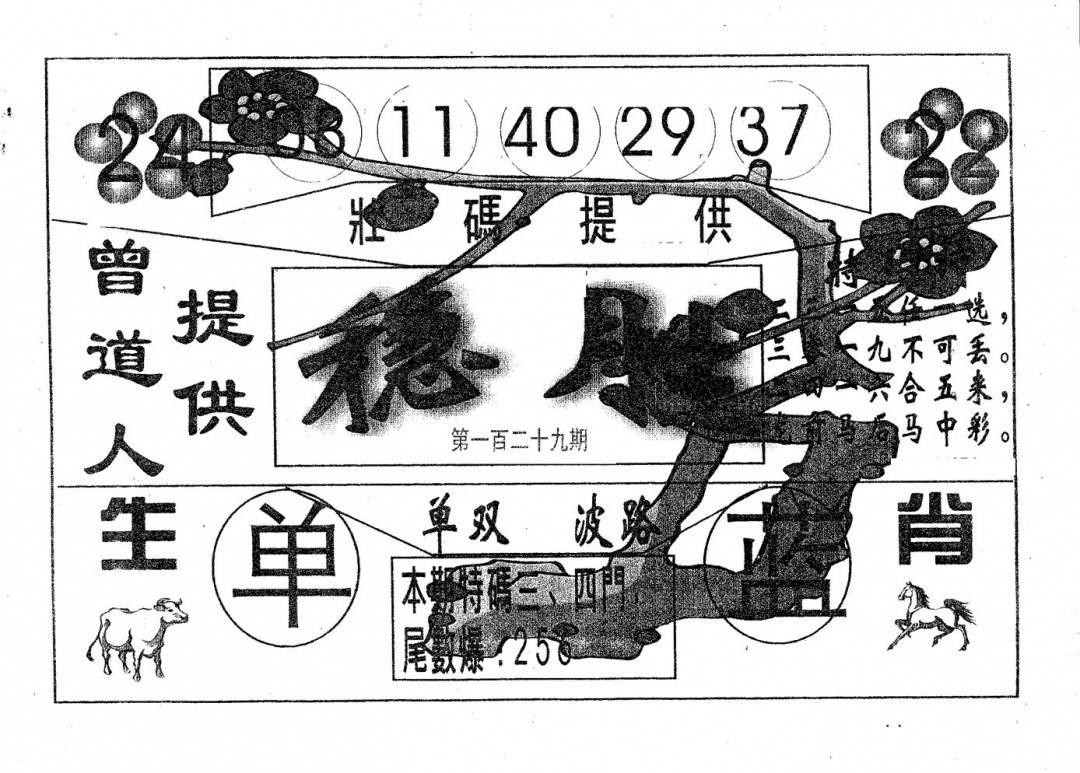 24 03 11 40 29 37 22
壯碼提供
曾道人
提供
特
选，
三 一九不可丢。
六合五来，
马后马中彩。
稳胜
第一百二十九期
生肖
单双 波路
单
蓝
本期特碼三、四門
尾數爆:256